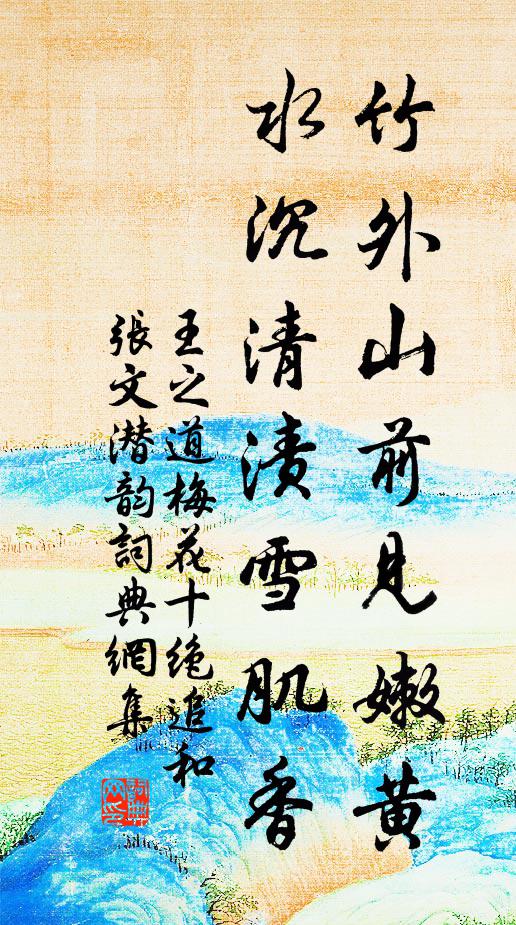 竹外山前見嫩黄
水沉清漬雪肌香
王之道梅花十绝追和
張文潜韵詞典網集